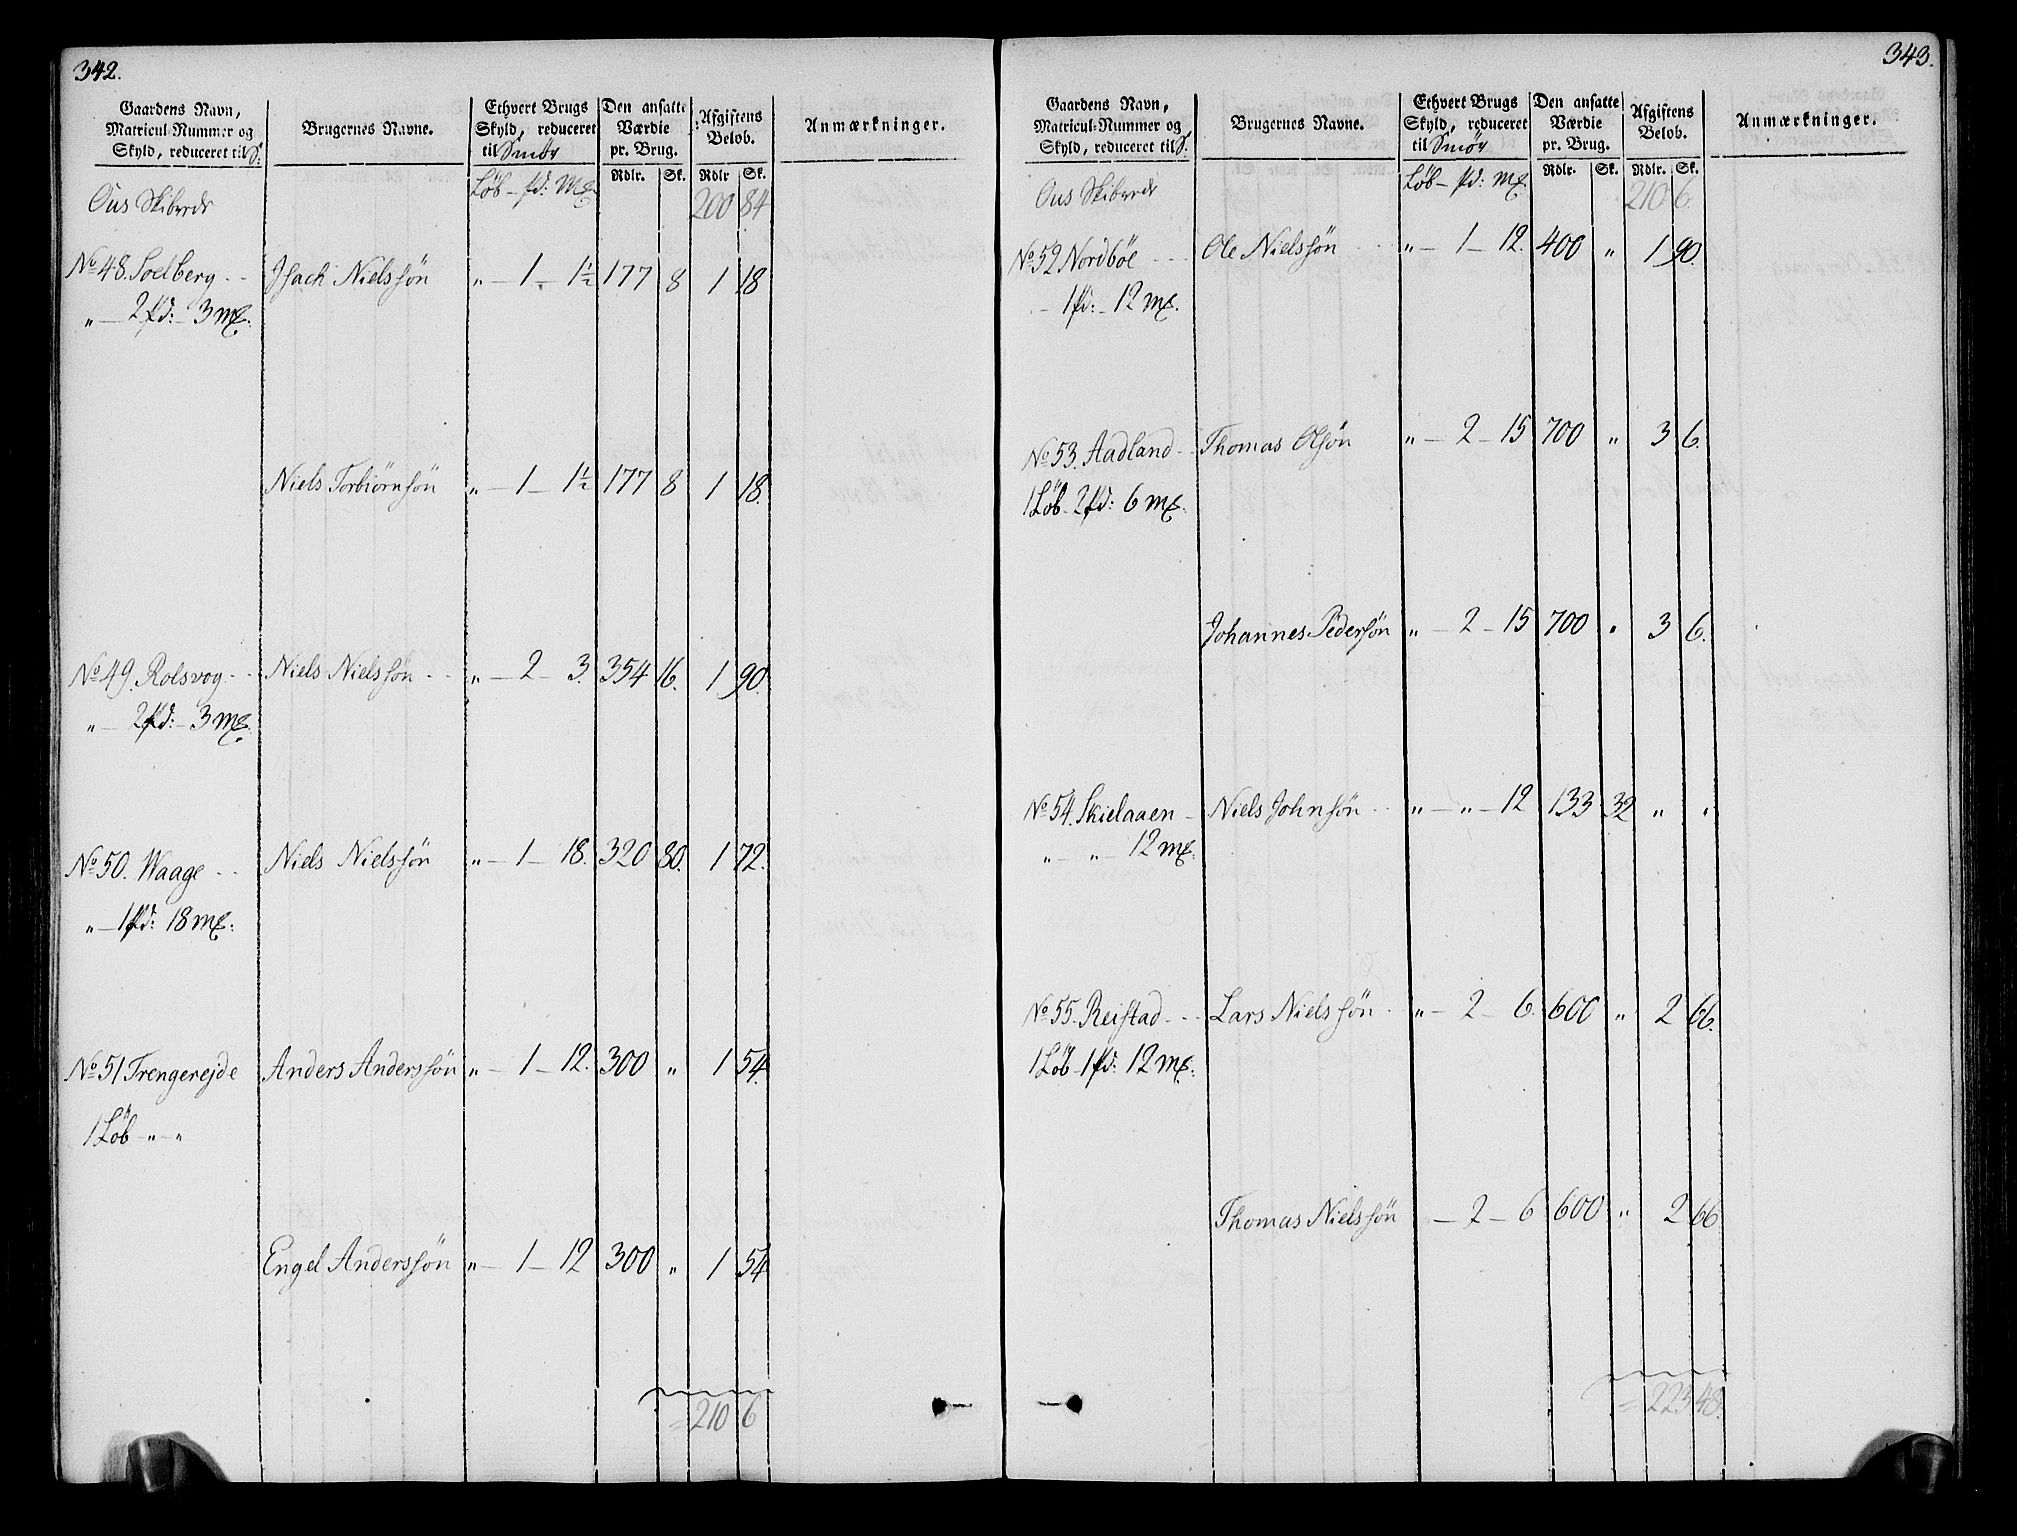 342.
Gaardens Navn, Matricul-Nummer og Skyld, reduceret til S: | Brugernes Navne. | Ethvert Brugs Skyld, reduceret til Smör | Den ansatte Værdie pr. Brug. | Afgiftens Belob. | Anmærkninger.
Rdlr. Sk. Rdlr Sk.
Ous Skibrede Löb - pd: Mk. 200 84
No 48. Soelberg - - Isach Nielssön „ - 1 - 1½ 177 8 1 18
„ - 2 pd: - 3 mk.
Niels Torbiörnsön „ - 1 - 1½ 177 8 1 18.
No 49. Rolsvog - - Niels Nielssön - - „ - 2 - 3. 354 16. 1 90.
„ - 2 pd: - 3 mk.
No 50. Waage - - Niels Nielssön „ - 1 - 18. 320 80. 1 72.
„ - 1 pd: 18 mk.
No 51 Trengerejde Anders Anderssön „ - 1 - 12. 300 „ 1 54.
1 Löb - „ - „
Engel Anderssön „ - 1 - 12 300 „ 1 54
= 210 6
343.
Gaardens Navn, Matricul-Nummer og Skyld, reduceret til S. | Brugernes Navne. | Ethvert Brugs Skyld, reduceret til Smör | Den ansatte Værdie pr. Brug. | Afgiftens Belob. | Anmærkninger.
Rdlr. Sk. Rdlr. Sk.
Ous Skibrede Löb - pd: mk. 210 6.
No 52 Nordböe - - - Ole Nielssön - - „ - 1 - 12. 400 „ 1 90.
- 1 pd: - 12 mk.
No 53. Aadland - - Thomas Olsön „ - 2 - 15 700 „ 3 6.
1 Löb - 2 pd: 6 mk.
Johannes Pedersön „ - 2 - 15 700 „ 3 6.
No 54. Skielaaen - Niels Johnsön - - „ - „ - 12 133 32 „ „
„ - „ - 12 mk.
No 55. Reistad - - - Lars Nielssön - „ - 2 - 6. 600 „ 2 66.
1 Löb - 1 pd: 12 mk.
Thomas Nielssön - 2 - 6 600 „ 2 66
= 223 48.